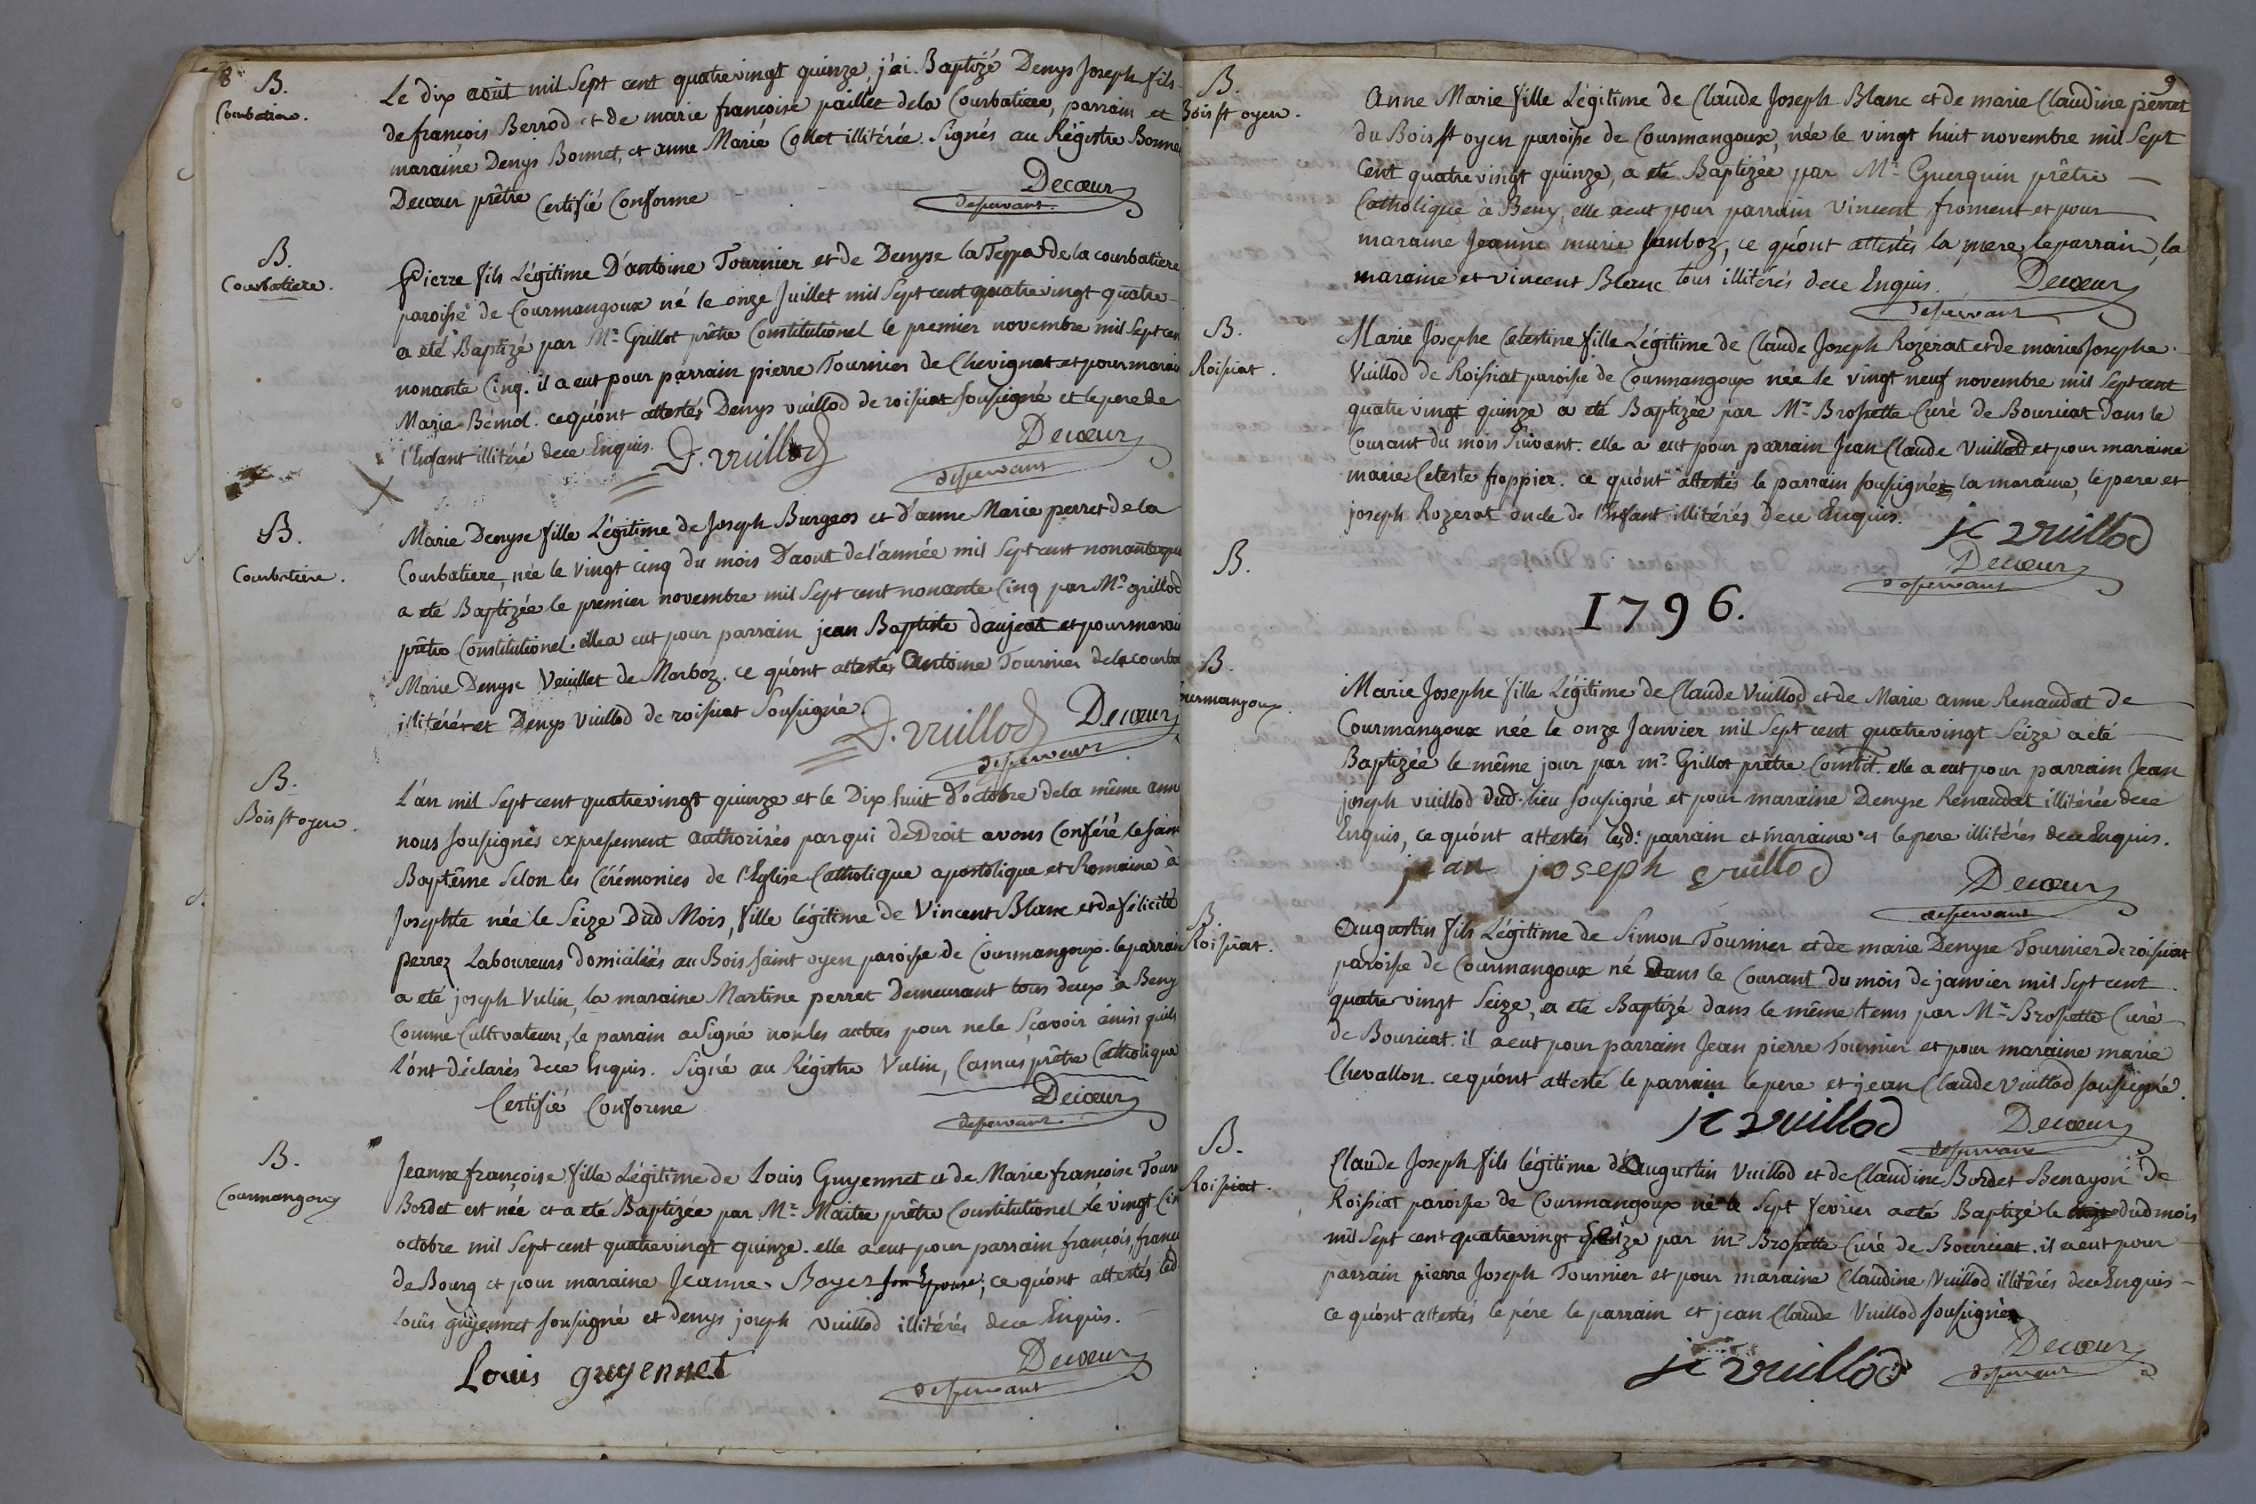 8
B.
Courbatiere.
Le dix août mil Sept cent quatrevingt quinze, j'ai Baptizé Denys Joseph fils
de françois Berrod et de marie françoise paillet dela Courbatiere, parrain et
maraine Denys Bonnet, et anne Marie Collet illitérée. Signés au Régistre Bonnet
Decœur prêtre Certifié Conforme
Decœur
desservant.
B.
Courbatiere.
Pierre fils Légitime D'antoine Tournier et de Denyse la Teppe de la courbatiere
paroisse de Courmangoux né le onze Juillet mil Sept cent quatrevingt quatre
a eté Baptizé par Mr Grillot prêtre Constitutionel le premier novembre mil Sept cen
nonante Cinq. il a eut pour parrain pierre Tournier de Chevignat et pour marai
Marie Bémol. ce qu'ont attestés Denys vuillod de roissiat soussigné et le pere de
l'Enfant illitéré de ce Enquis. D. vuillod
Decœur
desservant
B.
Courbatiere.
Marie Denyse fille Légitime de Joseph Burgeos et d'anne Marie perret de la
Courbatiere, née le vingt cinq du mois D'aout de l'année mil Sept cent nonante
a eté Baptizée le premier novembre mil Sept cent nonante Cinq par Mr grillod
prêtre Constitutionel. elle a eut pour parrain jean Baptiste daujeat et pour marai
Marie Denyse Veuillet de Marboz. ce qu'ont attestés Antoine Tournier de la courba
illitéré et Denys Vuillod de roissiat Soussigné.
D. vuillod
Decœur
desservant
B.
Bois st oyen.
L'an mil Sept cent quatrevingt quinze et le Dix huit d'octobre de la même ann
nous soussignés expressement authorisés par qui de Droit avons Conféré le sain
Baptême Selon les Cérémonies de l'Eglise Catholique apostolique et Romaine à
Josephte née le Seize Dud Mois, fille légitime de Vincent Blanc et de félicité
perrez Laboureurs domiciliés au Bois saint oyen paroisse de Courmangoux. le parrain
a eté joseph Vulin, la maraine Martine perret Demeurant tous deux à Beny
Comme Cultivateurs, le parrain a Signé non les autres pour ne le Sçavoir ainsi quils
l'ont déclarés de ce Enquis. Signé au Régistre Vulin, Camus prêtre Catholique
Certifié Conforme
Decœur
desservant.
B.
Courmangoux
Jeanne françoise fille Légitime de Louis Guyennet et de Marie francoise Tourn
Bordet est née et a eté Baptizée par Mr Maitre prêtre Constitutionel le vingt Cin
octobre mil Sept cent quatrevingt quinze. elle a eut pour parrain françois franc
de Bourg et pour maraine Jeanne Boyer son Epouse; ce qu'ont attestés led
Louis guyennet soussigné et denys joseph vuillod illitérés de ce Enquis.
Louis guyennet
Decœur
desservant
9
B.
Bois st oyen.
Anne Marie fille Légitime de Claude Joseph Blanc et de marie Claudine perret
du Bois st oyen paroisse de Courmangoux, née le vingt huit novembre mil Sept
Cent quatrevingt quinze, a eté Baptizée par Mr Guerquin prêtre
Catholique à Beny, elle a eut pour parrain Vincent froment et pour
maraine Jeanne marie Janboz, ce qu'ont attestés la mere, le parrain, la
maraine et vincent Blanc tous illitérés de ce Enquis.
Decœur
desservant
B.
Roissiat.
Marie Josephe Celestine fille Légitime de Claude Joseph Rozerat et de marie Josephe
Vuillod de Roissiat paroisse de Courmangoux née le vingt neuf novembre mil Sept cent
quatre vingt quinze a eté Baptizée par Mr Brossette Curé de Bourciat dans le
Courant du mois Suivant. elle a eut pour parrain Jean Claude Vuillod et pour maraine
marie Celeste froppier. ce qu'ont attestés le parrain soussigné, la maraine, le pere et
joseph Rozerat oncle de l'Enfant illitérés de ce Enquis.
jc vuillod
Decœur
desservant
B.
1796.
B.
Courmangoux.
Marie Josephe fille Légitime de Claude Vuillod et de Marie anne Renaudat de
Courmangoux née le onze Janvier mil Sept cent quatrevingt Seize a eté
Baptizée le même jour par mr Grillot prêtre Constit. elle a eut pour parrain Jean
joseph vuillod dud. lieu soussigné et pour maraine Denyse Renaudat illitérée de ce
Enquis, ce qu'ont attestés led: parrain et maraine et le pere illitérés de ce Enquis.
jean joseph vuillod
Decœur
desservant
B.
Roissiat.
Augustin fils Légitime de Simon Tournier et de marie Denyse Tournier de roissiat
paroisse de Courmangoux né Dans le Courant du mois de janvier mil Sept cent
quatre vingt Seize, a eté Baptizé dans le même tems par Mr Brossette Curé
de Bourciat. il a eut pour parrain Jean pierre Tournier et pour maraine marie
Chevallon. ce qu'ont attesté le parrain le pere et jean Claude Vuillod soussigné.
jc vuillod
Decœur
desservant
B.
Roissiat.
Claude Joseph fils légitime d'Augustin Vuillod et de Claudine Bordet Benayon de
Roissiat paroisse de Courmangoux né le Sept fevrier a eté Baptizé le dud mois
mil Sept cent quatrevingt Seize par mr Brossette Curé de Bourciat. il a eut pour
parrain pierre Joseph Tournier et pour maraine Claudine Vuillod illitérés de ce Enquis
ce qu'ont attestés le pére le parrain et jean Claude Vuillod soussignés
jc vuillod
Decœur
desservant